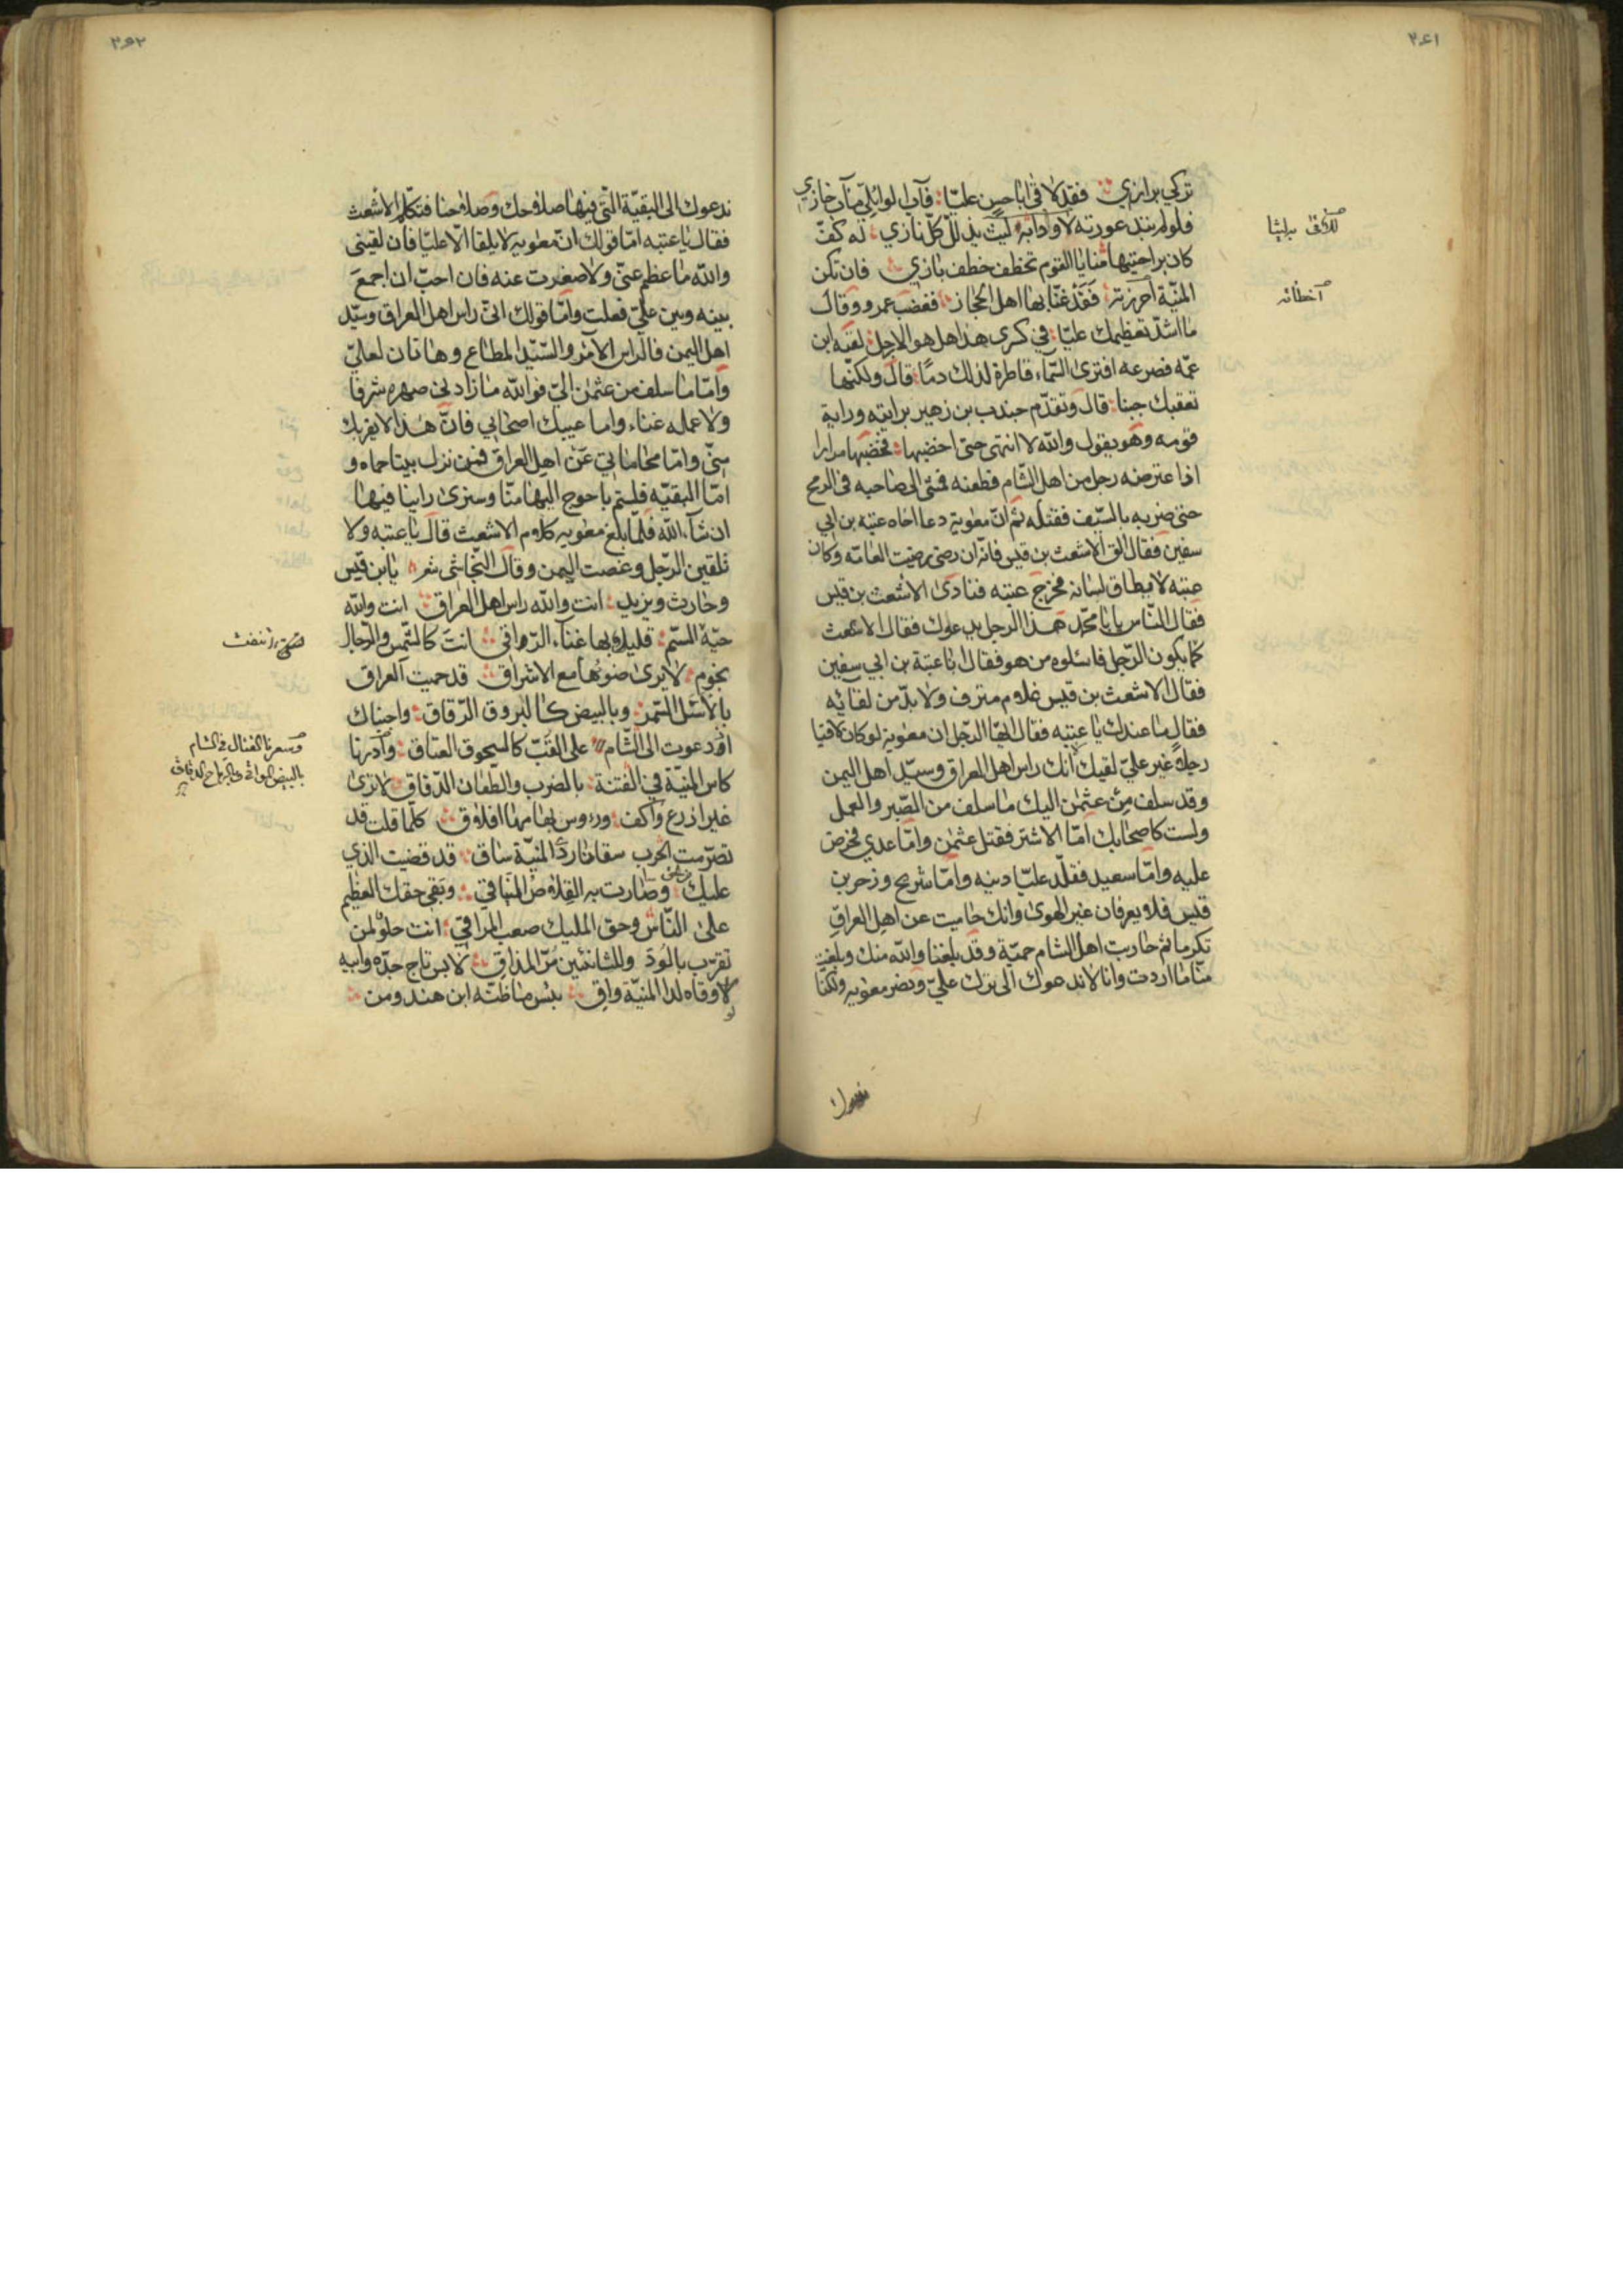 ٢٦١
تركي برازي فقد لاقى ابا حسن عليا فآب الوائلي مآب خازي
فلو لم يبد عورته لاودا به ليث يذلل كل نازي له كف
كان براحتيها منايا القوم تخطف خطف بازي فان تكن
المنية احرزته فقد غنا بها اهل الحجاز فغضب عمرو وقال
ما اشد تعظيمك عليا في كرى هذا هل هو الا رجل لقيه ابن
عمه فصرعه افترى السماء قاطرة لذلك دما قال ولكنها
تعقبك جبنا قال وتقدم جندب بن زهير برايته وراية
قومه وهو يقول والله لا انتهى حتى اخضبها فخضبها مرارا
اذا عترضه رجل من اهل الشام فطعنه فمشى الى صاحبه في الرمح
حتى ضربه بالسيف فقتله ثم ان معوية دعا اخاه عتبة بن ابي
سفين فقال الق الاشعث بن قيس فانه ان رضى رضيت العامة وكان
عتبه لا يطاق لسانه فخرج عتبه فنادى الاشعث بن قيس
فقال الناس يا با محمد هذا الرجل يدعوك فقال الاشعث
كما يكون الرجل فاسئلوه من هو فقال انا عتبة بن ابي سفين
فقال الاشعث بن قيس غلام مترف ولا بد من لقائه
فقال ما عندك يا عتبه فقال ايها الرجل ان معويه لو كان لاقيا
رجلا غير علي لقيك انك راس اهل العراق وسيد اهل اليمن
وقد سلف من عثمن اليك ما سلف من الصهر والعمل
ولست كاصحابك اما الاشتر فقتل عثمن واما عدي فحرض
عليه واما سعيد فقلد عليا دينه واما شريح وزحر بن
قيس فلا يعرفان غير الهوى وانك حاميت عن اهل العراق
تكرما ثم حاربت اهل الشام حمية وقد بلغنا والله منك وبلغت
منا ما اردت وانا لا ندعوك الى ترك علي ونصر معويه ولكنا
ندعوك
٢٦٢
ندعوك الى البقية التي فيها صلاحك وصلاحنا فتكلم الاشعث
فقال يا عتبه اما قولك ان معويه لا يلقا الا عليا فان لقيني
والله ما عظم عني ولا صغرت عنه فان احب ان اجمع
بينه وبين علي فعلت واما قولك اني راس اهل العراق وسيد
اهل اليمن فالراس الامر والسيد المطاع وهاتان لعلي
واما ما سلف من عثمن الي فوالله ما زادني صهره شرفا
ولا عمله غناء واما عيبك اصحابي فان هذا لا يقربك
مني واما محاماتي عن اهل العراق فمن نزل بيتا حماه و
اما البقيه فلستم باحوج اليها منا وسنرى راينا فيها
ان شاء الله فلما بلغ معويه كلام الاشعث قال يا عتبه ولا
تلقين الرجل وغصت اليمن وقال النجاشي شعر يا بن قيس
وحارث ويزيد انت والله راس اهل العراق انت والله
حية السم قليلا بها غناء الرواقي انت كالشمس والرجال
نجوم لا يرى ضوئها مع الاشراق قد حميت العراق
بالاسل السمر وبالبيض كالبروق الرقاق واجبناك
اذ دعوت الى الشام على القب كالسحوق العتاق وادرنا
كاس المنية في الفتنة بالضرب والطعان الدقاق لا ترى
غير اذرع واكف ورءوس بهامها افلاق كلما قلت قد
تصرمت الحرب سقانا ردى المنية ساق قد قضيت الذي
عليك وصارت به القلاص المناقي وبقى حقك العظيم
على الناس وحق المليك صعب المراقي انت حلو لمن
تقرب بالود وللشانئين مر المذاق لابس تاج جده وابيه
لو وقاه لدا المنية واق بئس ما ظنه ابن هند ومن